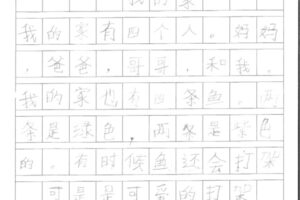 我的家
我的家有四个人。妈妈
，爸爸，哥哥，和我。
我的家也有四条鱼。两
条是绿色，两条是紫色
的。有时候鱼还会打架
可是是可爱的打架